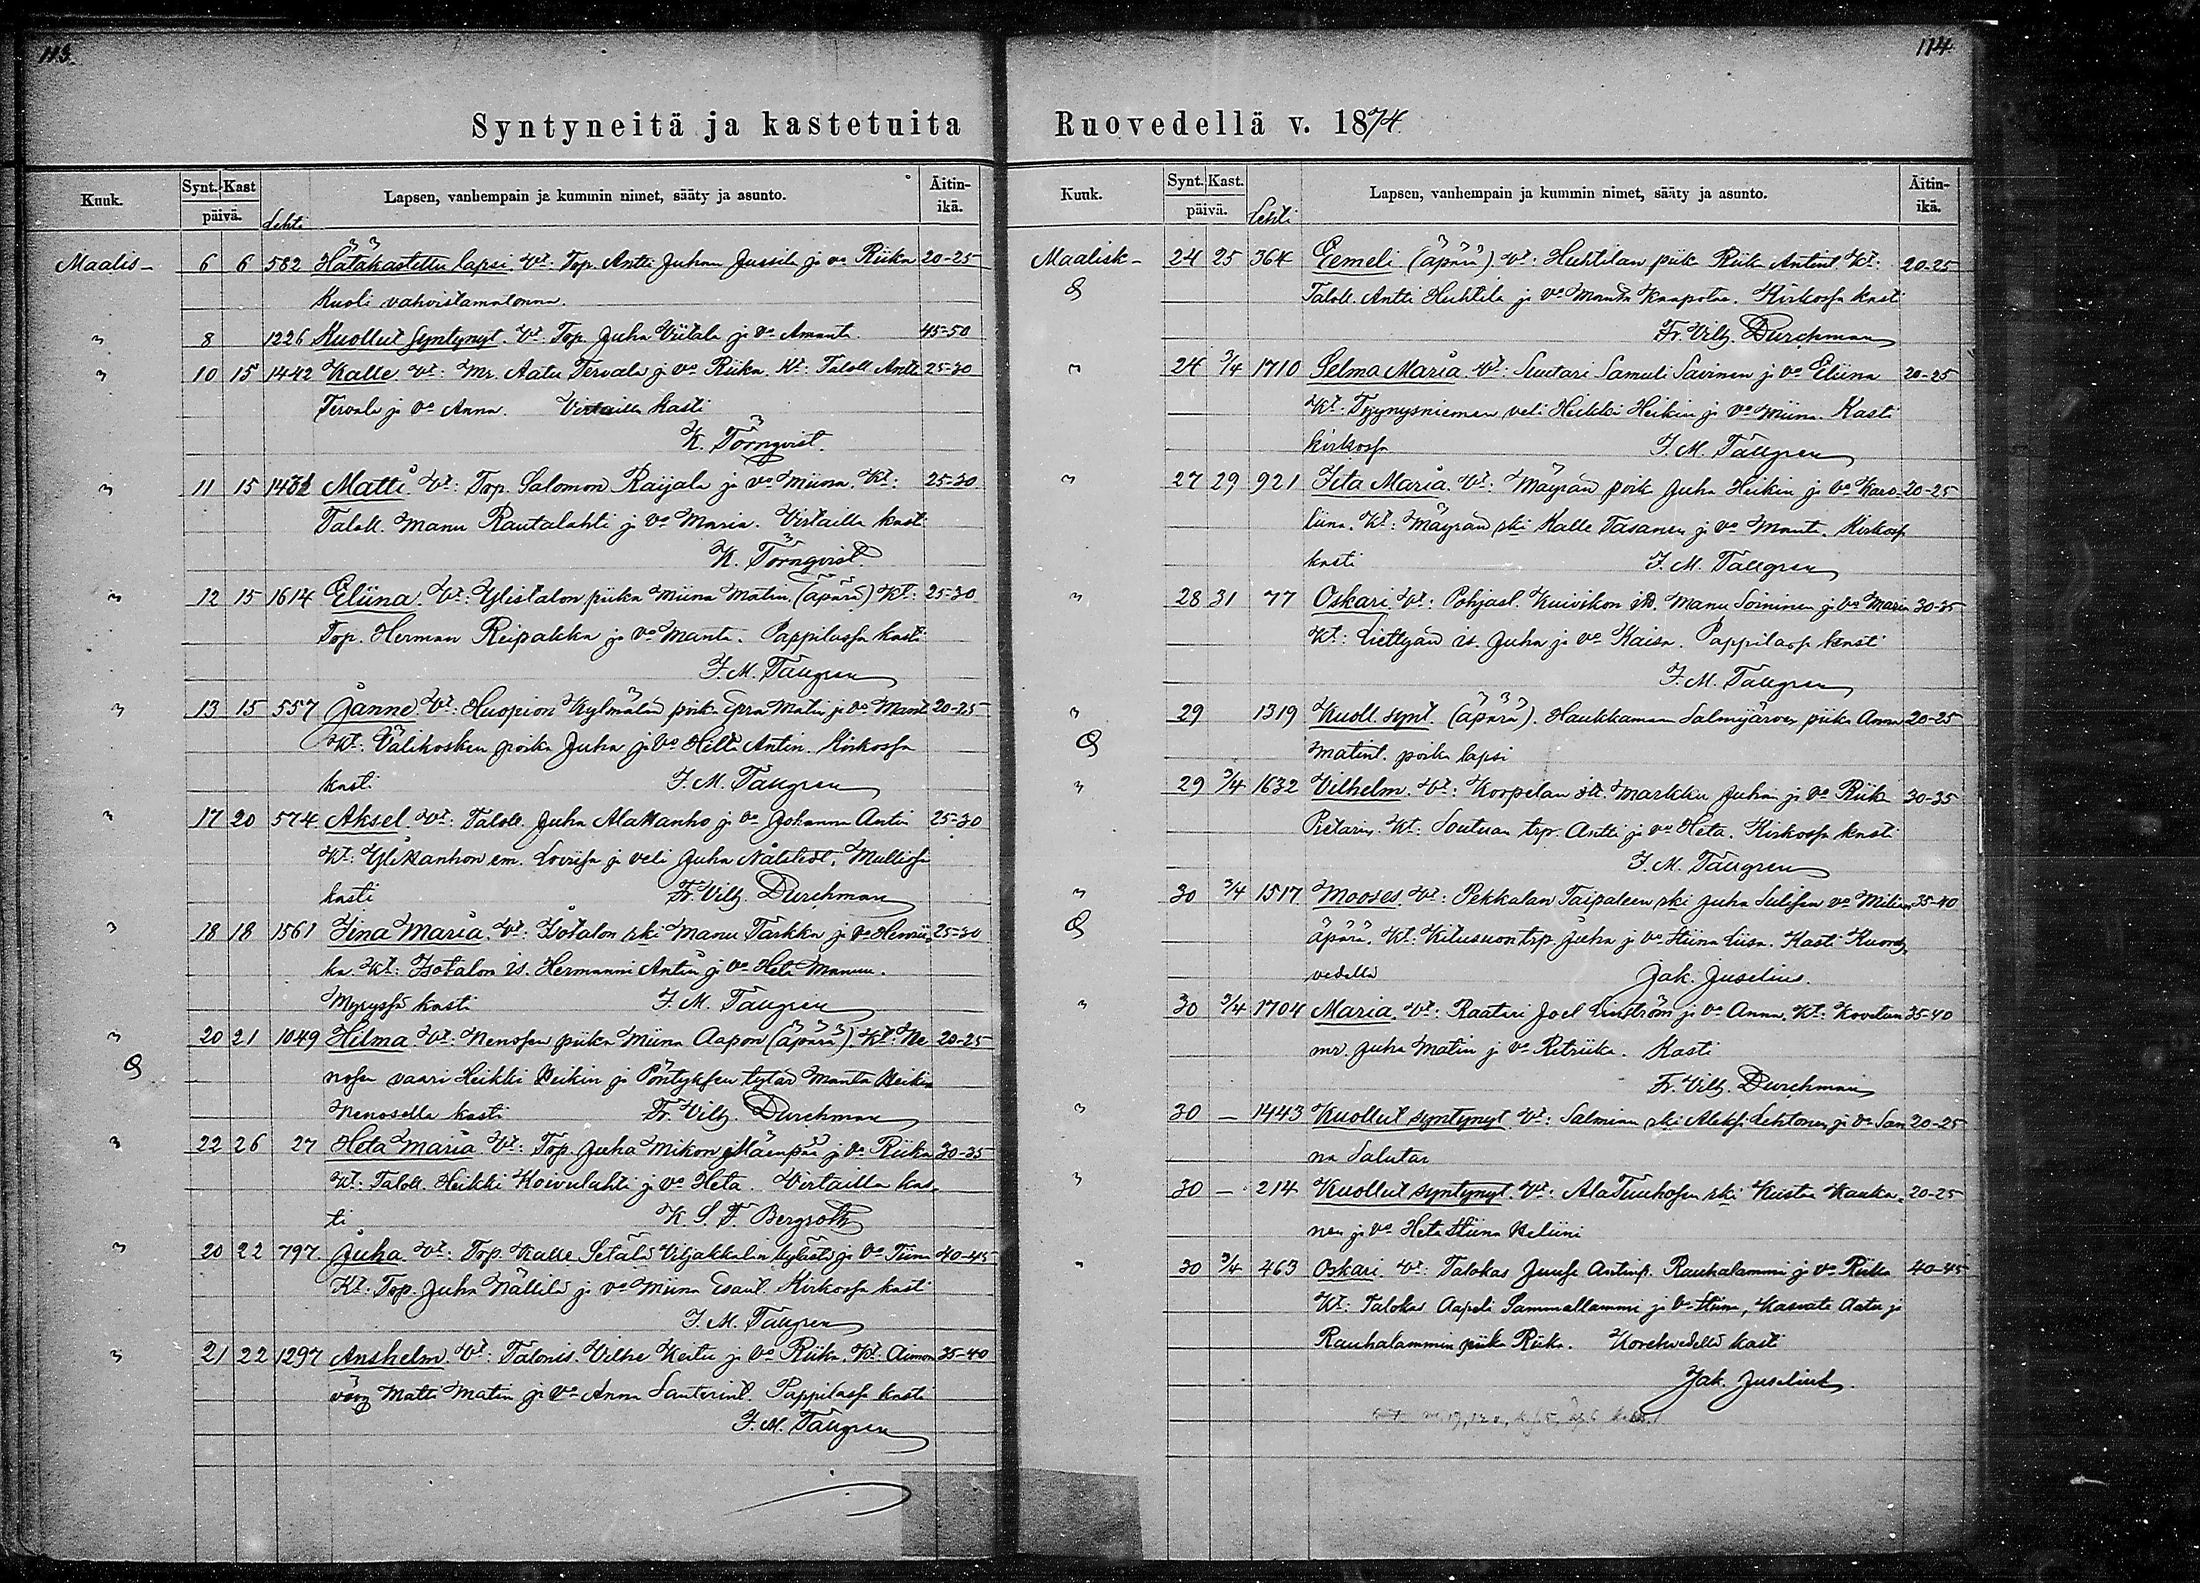 113.
Syntyneitä ja kastetuita
Kuuk. Synt. Kast päivä. Lehti Lapsen, vanhempain ja kummin nimet, sääty ja asunto. Äitin-ikä.
Maalis- 6 6 582 Hätäkastettu lapsi. Vt. Top. Antti Juhan Jussila ja vo Riika 20-25
Kuoli vahvistamatonna.
" 8 1226 Kuollut syntynyt. Vt. Top. Juha Viitala ja vo Amanta. 45-50
" 10 15 1442 Kalle. Vt: Mr. Aatu Tervala ja vo Riika. Kt: Taloll. Antti 25-30
Tervala ja vo Anna. Virtailla kasti
K. Törnqvist.
" 11 15 1432 Matti. Vt: Top. Salomon Raijala ja vo Miina. Kt: 25-30
Taloll. Manu Rautalahti ja vo Maria. Virtailla kasti
K. Törnqvist.
" 12 15 1614 Eliina. Vt: Ylistalon piika Miina Matin (äpärä) Kt: 25-30
Top. Herman Reipakka ja vo Manta. Pappilassa kasti
J. M. Tallgren
" 13 15 557 Janne Vt: Huopion Kylmälän poik. Epra Matin ja vo Mant 20-25
Kt. Välikosken poika Juha ja vo Hilta Antin. Kirkossa
kasti J. M. Tallgren
" 17 20 574 Aksel. Vt: Taloll. Juha Alakanho ja vo Johanna Antin 25-30
Kt: Ylikanhon em. Loviisa ja veli Juha
kasti Fr. Vilh. Durchman
" 18 18 1561 Iina Maria. Vt: Isotalon rki Manu Tarkka ja vo Henrii- 25-30
ka. Kt: Isotalon is. Hermanni Antin ja vo Heta Manun.
kasti J. M. Tallgren
" 20 21 1049 Hilma Vt: Nenosen piika Miina Aapon (äpärä). Kt: Ne 20-25
nosen vaari Heikki Heikin ja Pöntyksen tytär Manta Heikin
Nenosella kasti Fr. Vilh. Durchman
" 22 26 27 Heta Maria Vt: Top. Juha Mikon Mäenpää ja vo Riika 30-35
Kt: Taloll. Heikki Koivulahti ja vo Heta Virtailla kas-
ti K. S. F. Bergroth
" 20 22 797 Juha Vt: Top. Kalle Setälä Viljakkalan kylästä ja vo Tiina 40-45
Kt: Top. Juha Nällilä ja vo Miina Esaul. Kirkossa kasti
J. M. Tallgren
" 21 22 1297 Anshelm. Vt: Talonis. Vilhe Keitu ja vo Riika. Kt: Aimon 35-40
vävy Matti Matin ja vo Anna Santerint. Pappilassa kasti
J. M. Tallgren
114
Ruovedellä v. 1874.
Kuuk. Synt. Kast. päivä. Lehti Lapsen, vanhempain ja kummin nimet, sääty ja asunto. Äitin-ikä.
Maalisk- 24 25 364 Eemeli (äpärä). Vt: Huhtilan piik. Riika Antint. Kt: 20-25
Taloll. Antti Huhtila ja vo Manta Kaapotar. Kirkossa kasti
Fr. Vilh. Durchman
" 24 3/4 1710 Selma Maria. Vt: Suutari Samuli Savinen ja vo Eliina 20-25
Kt. Tyynysniemen veli Heikki Heikin ja vo Miina. Kasti
kirkossa J. M. Tallgren
" 27 29 921 Iita Maria. Vt: Mäyrän poik. Juha Heikin ja vo Karo- 20-25
liina. Kt: Mäyrän rki Kalle Tasanen ja vo Manta. Kirkossa
kasti J. M. Tallgren
" 28 31 77 Oskari. Vt: Pohjasl. Kuivikon itl. Manu Soininen ja vo Maria 30-35
Kt: Liettyän is. Juha ja vo Kaisa. Pappilassa kasti
J. M. Tallgren
" 29 1319 Kuoll. synt. (äpärä). Haukkamaan Salmijärven piika Anna 20-25
Matint. poika lapsi
" 29 3/4 1632 Vilhelm. Vt: Korpelan itl. Markku Juhan ja vo Riik. 30-35
Pietarin. Kt: Soutuan trp. Antti ja vo Heta. Kirkossa kasti
J. M. Tallgren
" 30 3/4 1517 Mooses. Vt: Pekkalan Taipaleen rki Juha vo 35-40
äpärä. Kt: Kitusuon trp. Juha ja vo Stiina Liisa. Kasti Kuore-
vedellä Jak. Juselius.
" 30 3/4 1704 Maria. Vt: Raatari Joel Linström ja vo Anna. Kt: Kovelan 35-40
mr. Juha Matin ja vo Retriika. Kasti
Fr. Vilh. Durchman
" 30 — 1443 Kuollut syntynyt Vt: Salmian rki Aleksi Lehtonen ja vo San 20-25
na Salutar
" 30 — 214 Kuollut syntynyt Vt: AlaTuuhosen rki Kusta Kauka- 20-25
nen ja vo Heta Stiina Heliini
" 30 3/4 463 Oskari. Vt: Talokas Juuse Antinp. Rauhalammi ja vo Riika 40-45
Kt: Talokas Aapeli Sammallammi ja vo Stiina, Kasvate Aatu ja
Rauhalammin piika Riika. Korehvedellä kasti
Jak. Juselius.